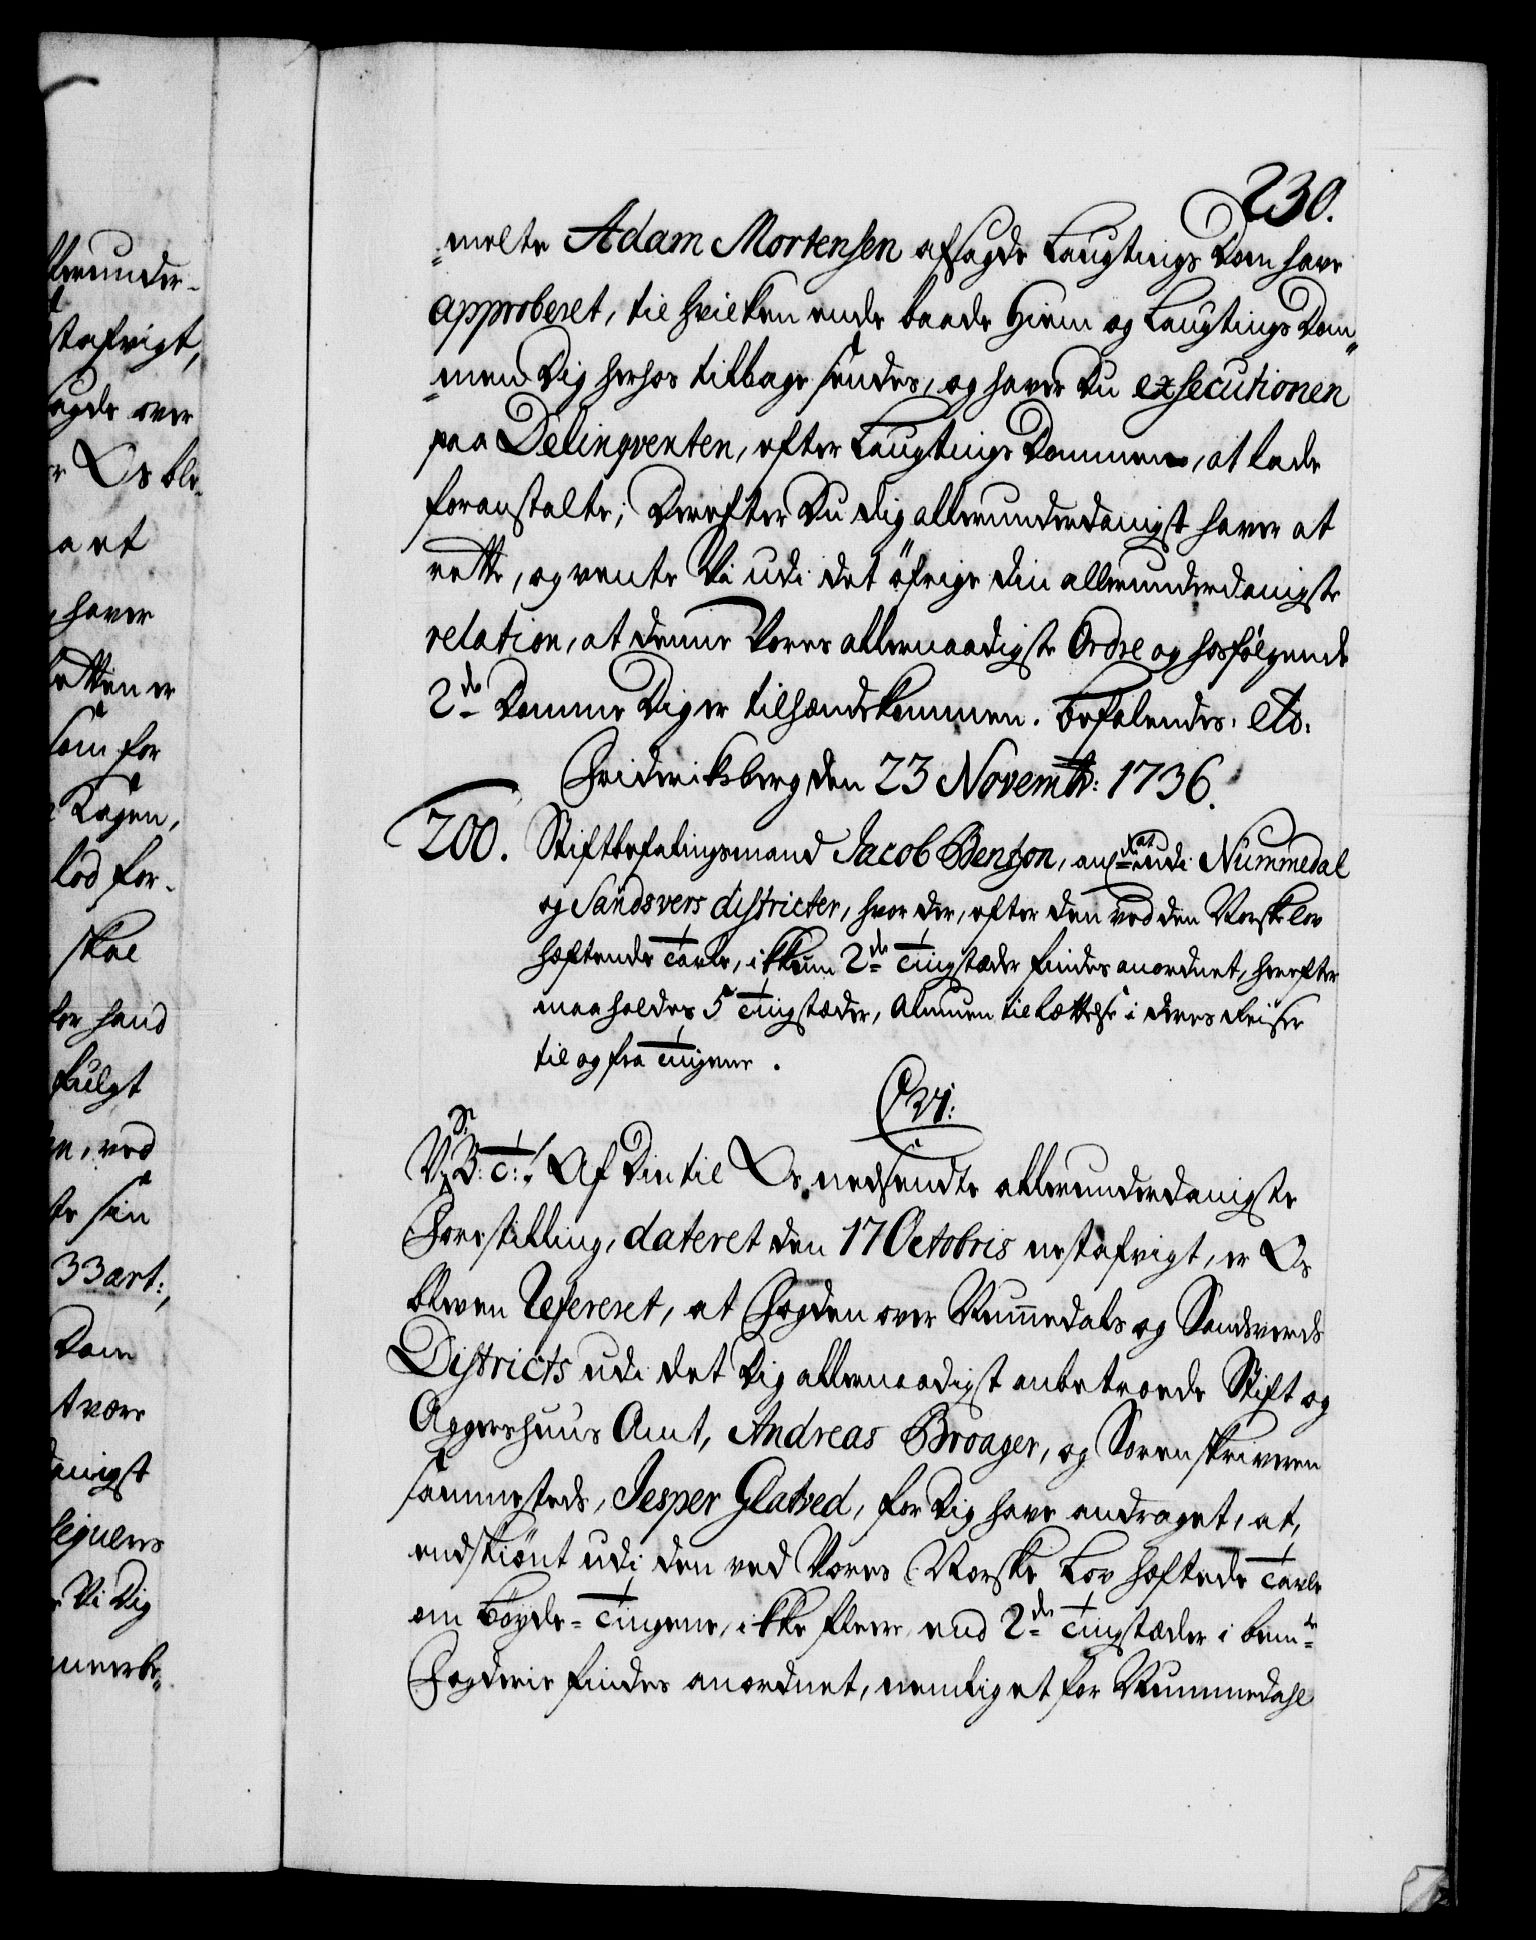 230.
=melte Adam Mortensen afsagde Laugtings Dom have
approberet, til hvilken ende baade Hiem og Laugtings Dom„
=men Dig herhos tilbage sendes, og haver Du exsecutionen
paa Delinqventen, efter Laugtings Dommen, at lade
foranstalte; Derefter Du dig allerunderdanigst haver at
rette, og vente Vi udi det öfrige din allerunderdanigste
relation, at denne Vores allernaadigste Ordre og hosfølgende
2de Domme Dig er tilhændekommen. Befalendes. etc.
Friderichsberg den 23 Novembr: 1736.
200. Stiftbefalingsmand Jacob Benzon, anl: at udi Nummedal
og Sandsvers districter, hvor der, efter den ved den Norske lov
hæftende Tavle, ikkun 2de Tingstæder findes anordnet, herefter
maa holdes 5 Tingstæder, Almuen til lættelse i deres Reiser
til og fra Tingene.
C VI:
V. Sr. B: T:! Af Din til Os nedsendte allerunderdanigste
Forestilling, dateret den 17 Octobris nestafvigt, er Os
bleven Refereret, at Fogden over Nummedals og Sandsverds
Districts udi det Dig allernaadigst anbetroede Stift og
Aggershuus Amt, Andreas Broager, og Sorenskriveren
sammesteds, Jesper Glatved, for Dig have andraget, at,
endskiönt udi den ved Vores Norske Lov hæftede Tavle
om Böyde=Tingene, ikke fleere, end 2de Tingstæder i bemte
Fogderie findes anordnet, nemlig et for Nummedahl